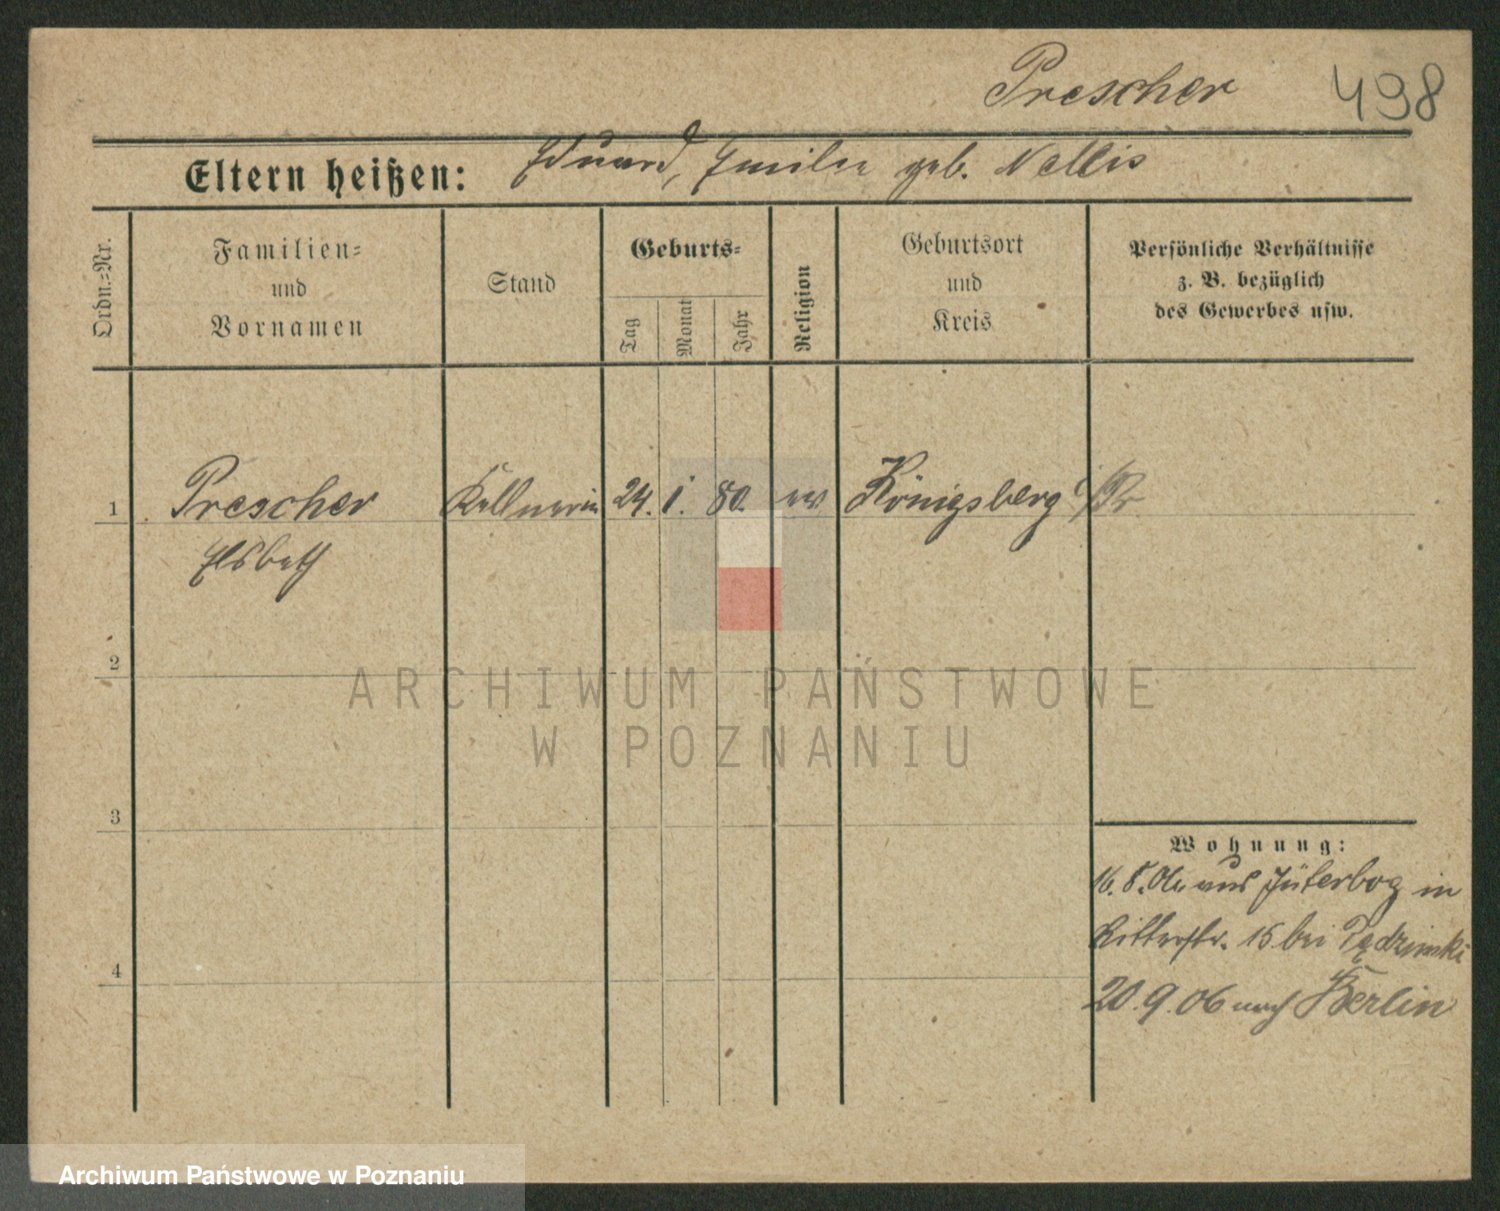 Prescher 498
Eltern heißen: Eduard, Emilie geb. Nellis
Ordn.=Nr.
Familien=
und
Vornamen
Stand
Geburts=
Tag
Monat
Jahr
Religion
Geburtsort
und
Kreis
Persönliche Verhältnisse
z. B. bezüglich
des Gewerbes usw.
1 Prescher Kellnerin 24. 1. 80. ev. Königsberg i/Pr
Elsbeth
2
3
4
ARCHIWUM PAŃSTWOWE
W POZNANIU
Wohnung:
16. 8. 06 aus Jüterbog in
Ritterstr. 15 bei
20. 9. 06 nach Berlin
Archiwum Państwowe w Poznaniu